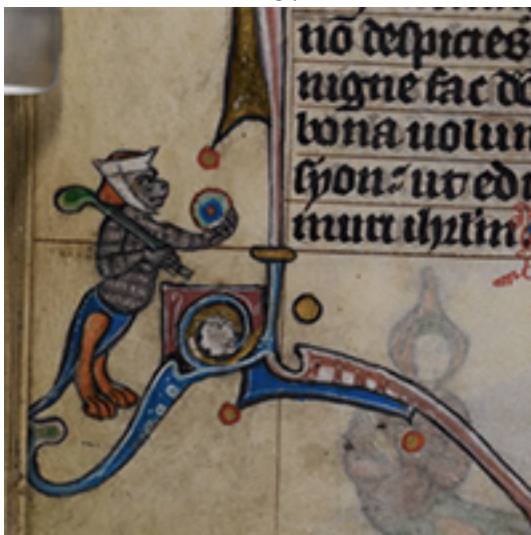 nō despicies
nigne fac do
bona uolun
syon: ut edi
muri ihrlm